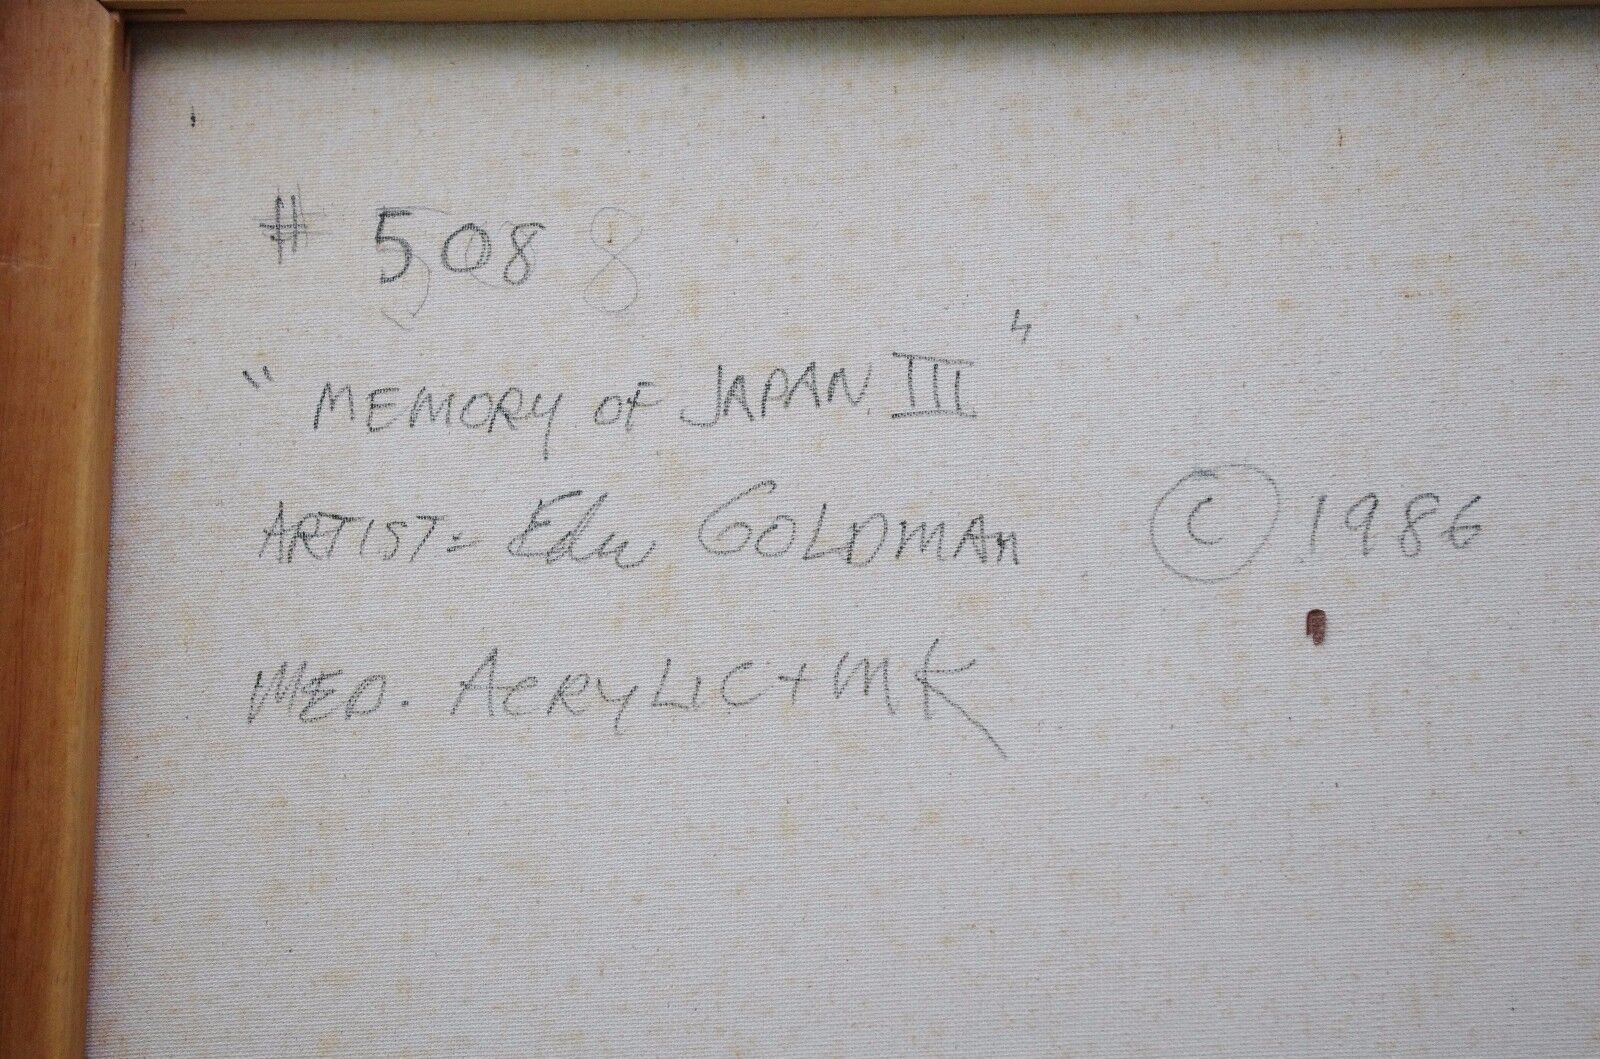 # 508 8
"MEMORY OF JAPAN III"
ARTIST= Edw GOLDMAN © 1986
MED. ACRYLIC + INK